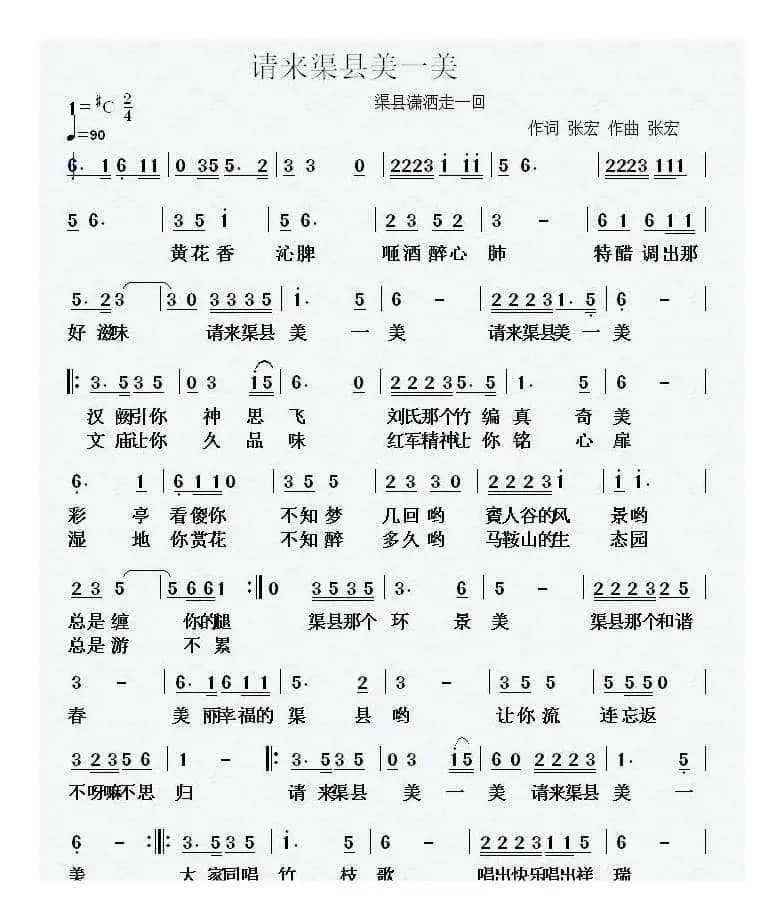 请来渠县美一美
1=#C 2/4
渠县潇洒走一回
♩=90
作词 张宏 作曲 张宏
6. 1 6 1 1 | 0 3 5 5. 2 | 3 3 0 | 2 2 2 3 i i i | 5 6. | 2 2 2 3 1 1 1 |
5 6. | 3 5 i | 5 6. | 2 3 5 2 | 3 - | 6 1 6 1 1 |
黄花香 沁脾 咂酒醉心 肺 特醋调出那
5. 2 3 | 3 0 3 3 3 5 | i. 5 | 6 - | 2 2 2 3 1. 5 | 6 - |
好滋味 请来渠县 美 一 美 请来渠县美一美
|: 3. 5 3 5 | 0 3 i 5 | 6. 0 | 2 2 2 3 5. 5 | 1. 5 | 6 - |
汉阙引你 神思飞 刘氏那个竹编真奇美
文庙让你 久品味 红军精神让你铭心扉
6. 1 | 6 1 1 0 | 3 5 5 | 2 3 3 0 | 2 2 2 3 i | i i. |
彩亭看傻你 不知梦 几回哟 賨人谷的风景哟
湿地你赏花 不知醉 多久哟 马鞍山的生态园
2 3 5 | 5 6 6 1 :| 0 3 5 3 5 | 3. 6 | 5 - | 2 2 2 3 2 5 |
总是缠 你的腿 渠县那个环景美 渠县那个和谐
总是游 不累
3 - | 6. 1 6 1 1 | 5. 2 | 3 - | 3 5 5 | 5 5 5 0 |
春 美丽幸福的渠县哟 让你流 连忘返
3 2 3 5 6 | 1 - |: 3. 5 3 5 | 0 3 i 5 | 6 0 2 2 2 3 | 1. 5 |
不呀嘛不思归 请来渠县 美一美 请来渠县美一
6 - :|: 3. 5 3 5 | i. 5 | 6 - | 2 2 2 3 1 1 5 | 6 - |
美 大家同唱竹枝歌 唱出快乐唱出祥瑞